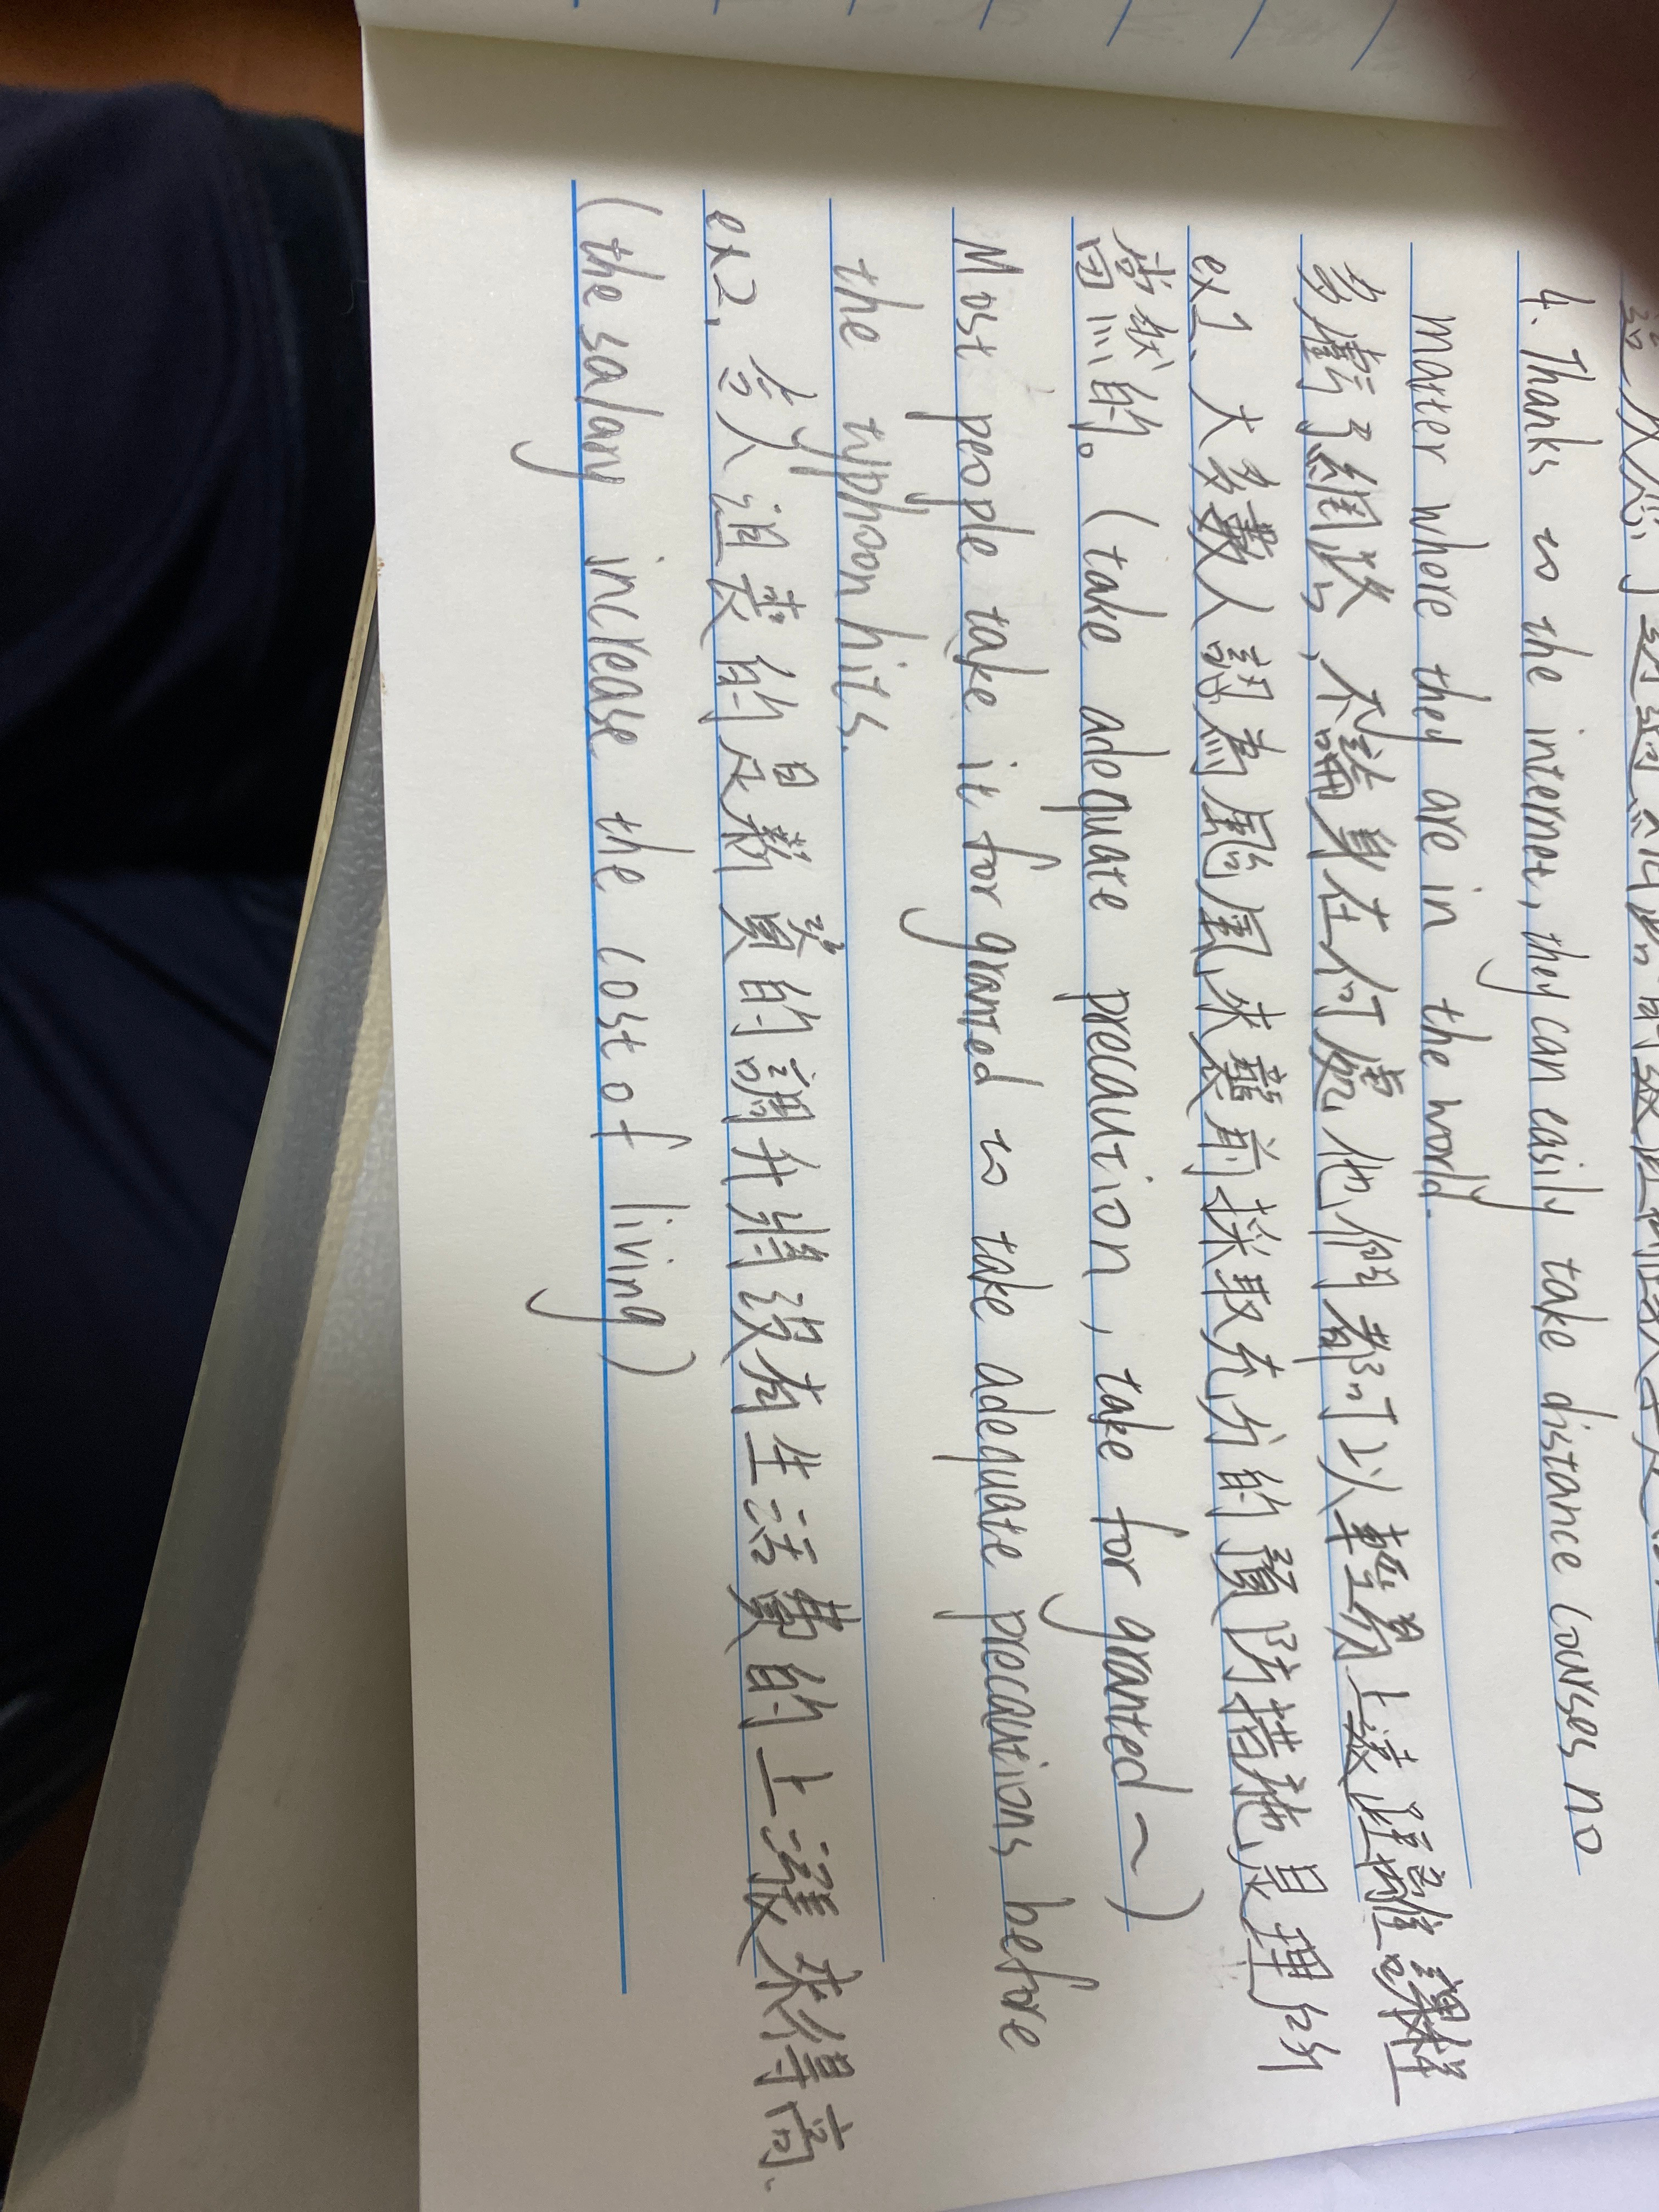 4. Thanks to the internet, they can easily take distance courses no
mater where they are in the world.
多虧了網路,不論身在何處,他們都可以輕易上遠距離課程
ex1、大多數人認為颱風來襲前採取充分的預防措施是理所
當然的。(take adequate precaution, take for granted~)
Most people take it for granted to take adequate precautions before
the typhoon hits.
ex2. 令人沮喪的是薪資的調升將沒有生活費的上漲來得高.
(the salary increase the cost of living)